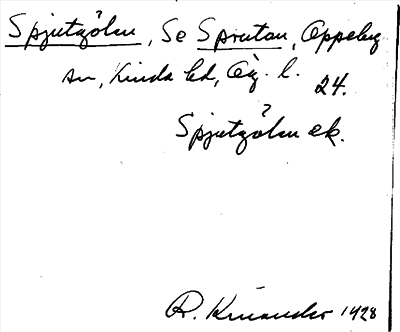 Spjutgöln, Se Sprutan, Oppeby
sn, Kinda hd, Ög. l.
24.
Spjutgöln ek.
R. Kinander 1928